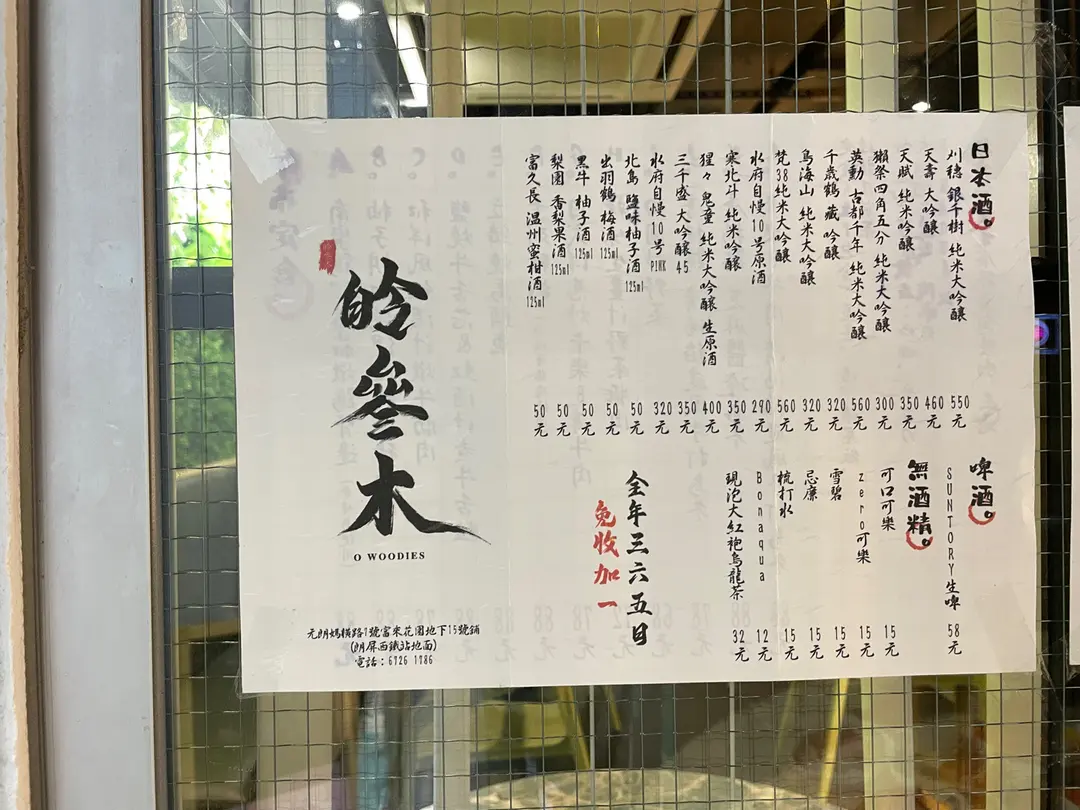 日本酒。
刈穂 銀千樹 純米大吟釀 550元
天壽 大吟釀 460元
天賦 純米吟釀 350元
獺祭四角五分 純米大吟釀 300元
英勳 古都千年 純米大吟釀 560元
千歲鶴 藏 吟釀 320元
鳥海山 純米大吟釀 320元
梵38純米大吟釀 560元
水府自慢10号原酒 290元
寒北斗 純米吟釀 350元
猩々 鬼童 純米大吟釀 生原酒 400元
三千盛 大吟釀45 350元
水府自慢10号PINK 320元
北島 鹽味柚子酒125ml 50元
出羽鶴 梅酒125ml 50元
黑牛 柚子酒125ml 50元
梨園 香梨果酒125ml 50元
富久長 温州蜜柑酒125ml 50元
啤酒。
SUNTORY生啤 58元
無酒精。
可口可樂 15元
zero可樂 15元
雪碧 15元
忌廉 15元
梳打水 15元
Bonaqua 12元
現泡大紅袍烏龍茶 32元
全年三六五日
免收加一
皊叄木
O WOODIES
元朗媽橫路1號富來花園地下15號鋪
(朗屏西鐵站地面)
電話：6726 1786